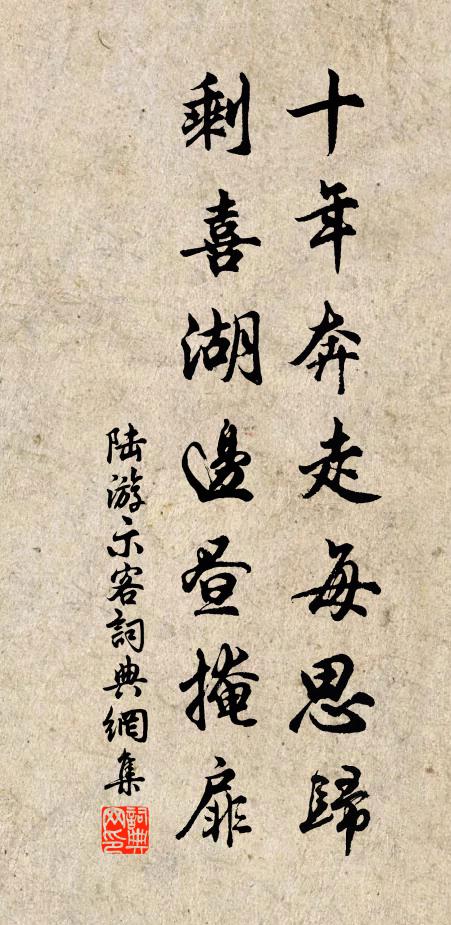 十年奔走每思歸
剩喜湖邊晝掩扉
陆游示客詞典網集
詞典網印